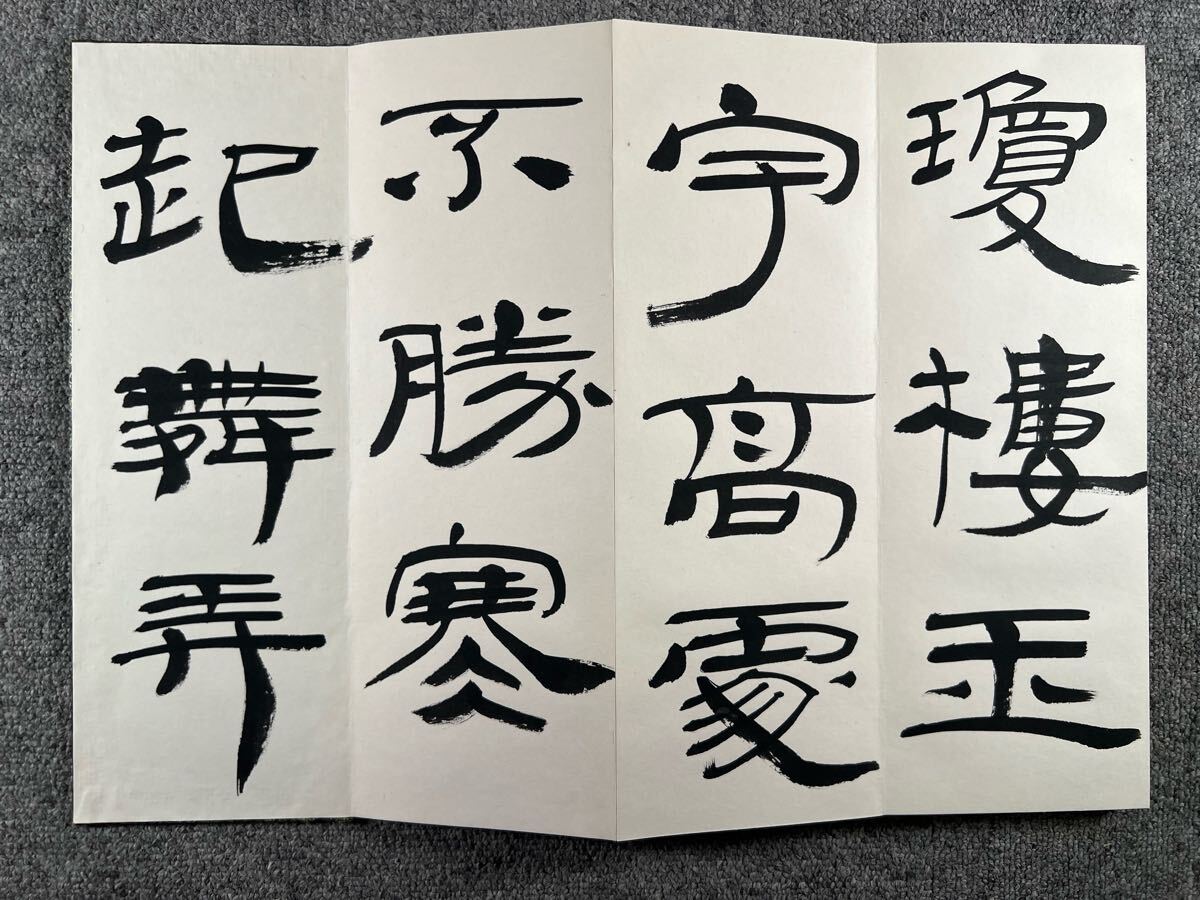 瓊樓玉
宇高處
不勝寒
起舞弄